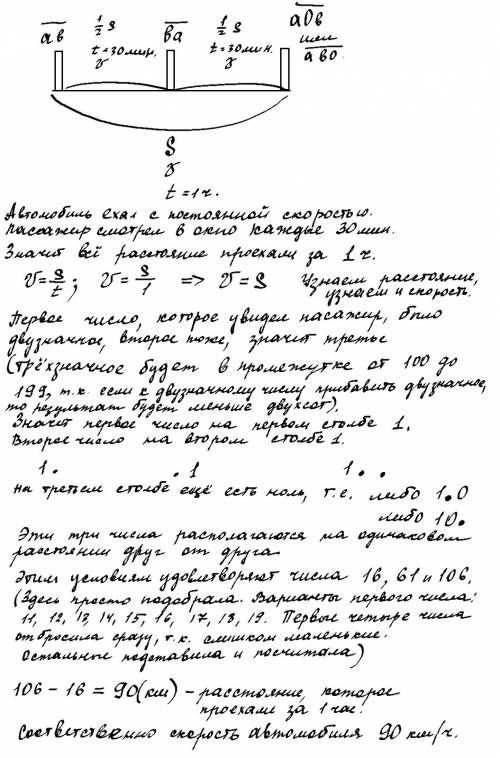 ав ½ S ва ½ S а0в
t=30мин. t=30мин. или
v v ав0
S
v
t=1ч.
Автомобиль ехал с постоянной скоростью.
Пассажир смотрел в окно каждые 30 мин.
Значит всё расстояние проехали за 1 ч.
v=S/t; v=S/1 => v=S Узнаем расстояние,
узнаем и скорость.
Первое число, которое увидел пасажир, было
двузначное, второе тоже, значит третье
(трёхзначное будет в промежутке от 100 до
199, т.к. если к двузначному числу прибавить двузначное,
то результат будет меньше двухсот).
Значит первое число на первом столбе 1.
Второе число на втором столбе 1.
1. .1 1..
На третьем столбе ещё есть ноль, т.е. либо 1.0
либо 10.
Эти три числа располагаются на одинаковом
расстоянии друг от друга.
Этим условиям удовлетворяют числа 16, 61 и 106.
(Здесь просто подобрала. Варианты первого числа:
11, 12, 13, 14, 15, 16, 17, 18, 19. Первые четыре числа
отбросила сразу, т.к. слишком маленькие.
Остальные подставила и посчитала)
106 - 16 = 90(км) - расстояние, которое
проехали за 1 час.
Соответственно скорость автомобиля 90 км/ч.